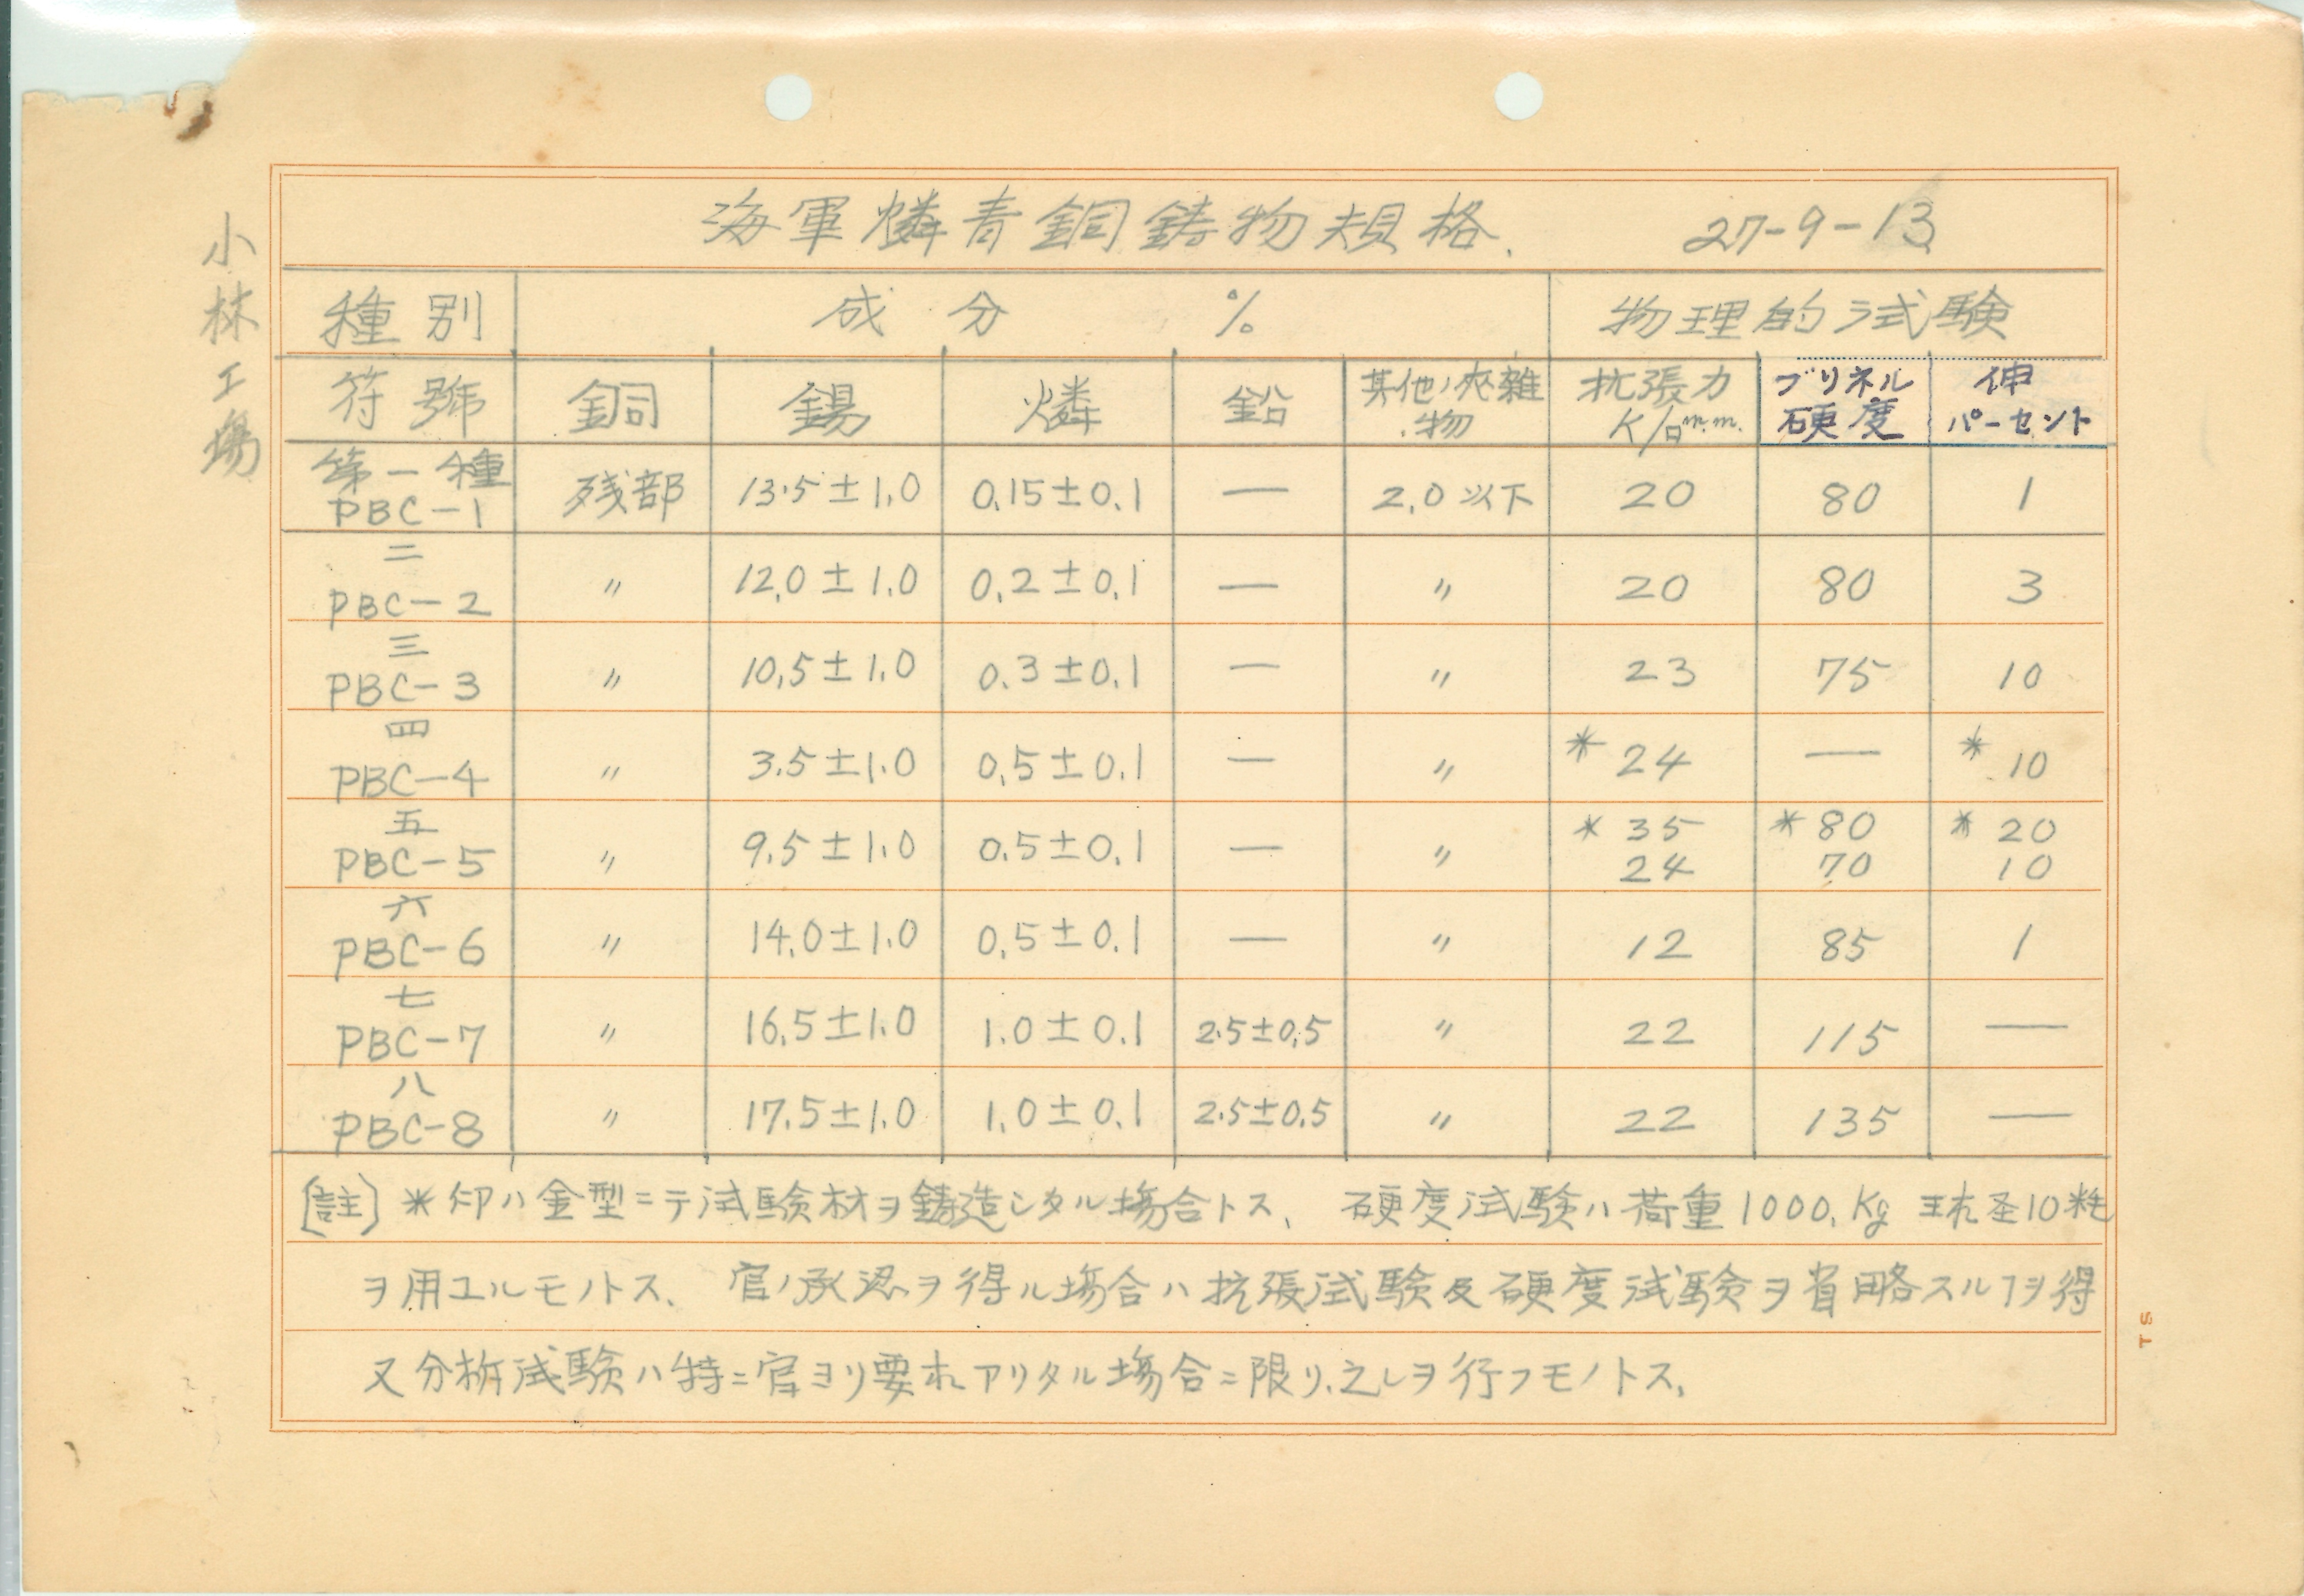 海軍燐青銅鋳物規格、 27-9-13
小林工場
種別 成分 % 物理的試験
符號 銅 錫 燐 鉛 其他ノ夾雜物 抗張力 K/□m.m. ブリネル硬度 伸パーセント
第一種 PBC-1 残部 13.5±1.0 0.15±0.1 — 2.0以下 20 80 1
二 PBC-2 〃 12.0±1.0 0.2±0.1 — 〃 20 80 3
三 PBC-3 〃 10.5±1.0 0.3±0.1 — 〃 23 75 10
四 PBC-4 〃 3.5±1.0 0.5±0.1 — 〃 *24 — *10
五 PBC-5 〃 9.5±1.0 0.5±0.1 — 〃 *35 24 *80 70 *20 10
六 PBC-6 〃 14.0±1.0 0.5±0.1 — 〃 12 85 1
七 PBC-7 〃 16.5±1.0 1.0±0.1 2.5±0.5 〃 22 115 —
八 PBC-8 〃 17.5±1.0 1.0±0.1 2.5±0.5 〃 22 135 —
〔註〕*印ハ金型ニテ試験材ヲ鋳造シタル場合トス、 硬度試験ハ荷重1000.Kg 球径10粍
ヲ用ユルモノトス、 官ノ承認ヲ得ル場合ハ抗張試験及硬度試験ヲ省略スルヿヲ得
又分析試験ハ特ニ官ヨリ要求アリタル場合ニ限リ、之レヲ行フモノトス、
TS